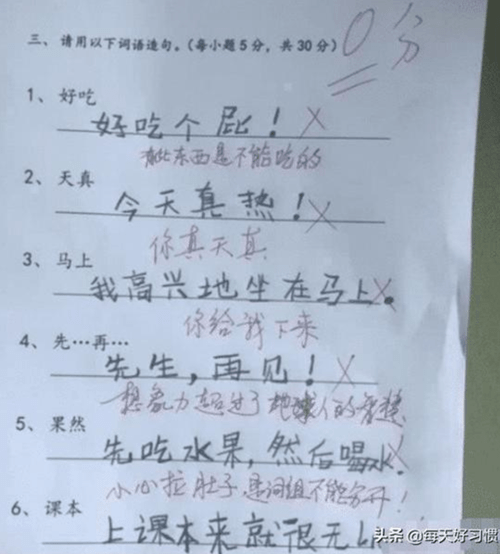 三、请用以下词语造句。（每小题5分，共30分）
0分
1、好吃
好吃个屁！×
有些东西是不能吃的
2、天真
今天真热！×
你真天真
3、马上
我高兴地坐在马上。×
你给我下来
4、先…再…
先生，再见！×
想象力超过了地球人的智慧
5、果然
先吃水果，然后喝水.×
小心拉肚子是词组不能分开！
6、课本
上课本来就很无
头条 @每天好习惯